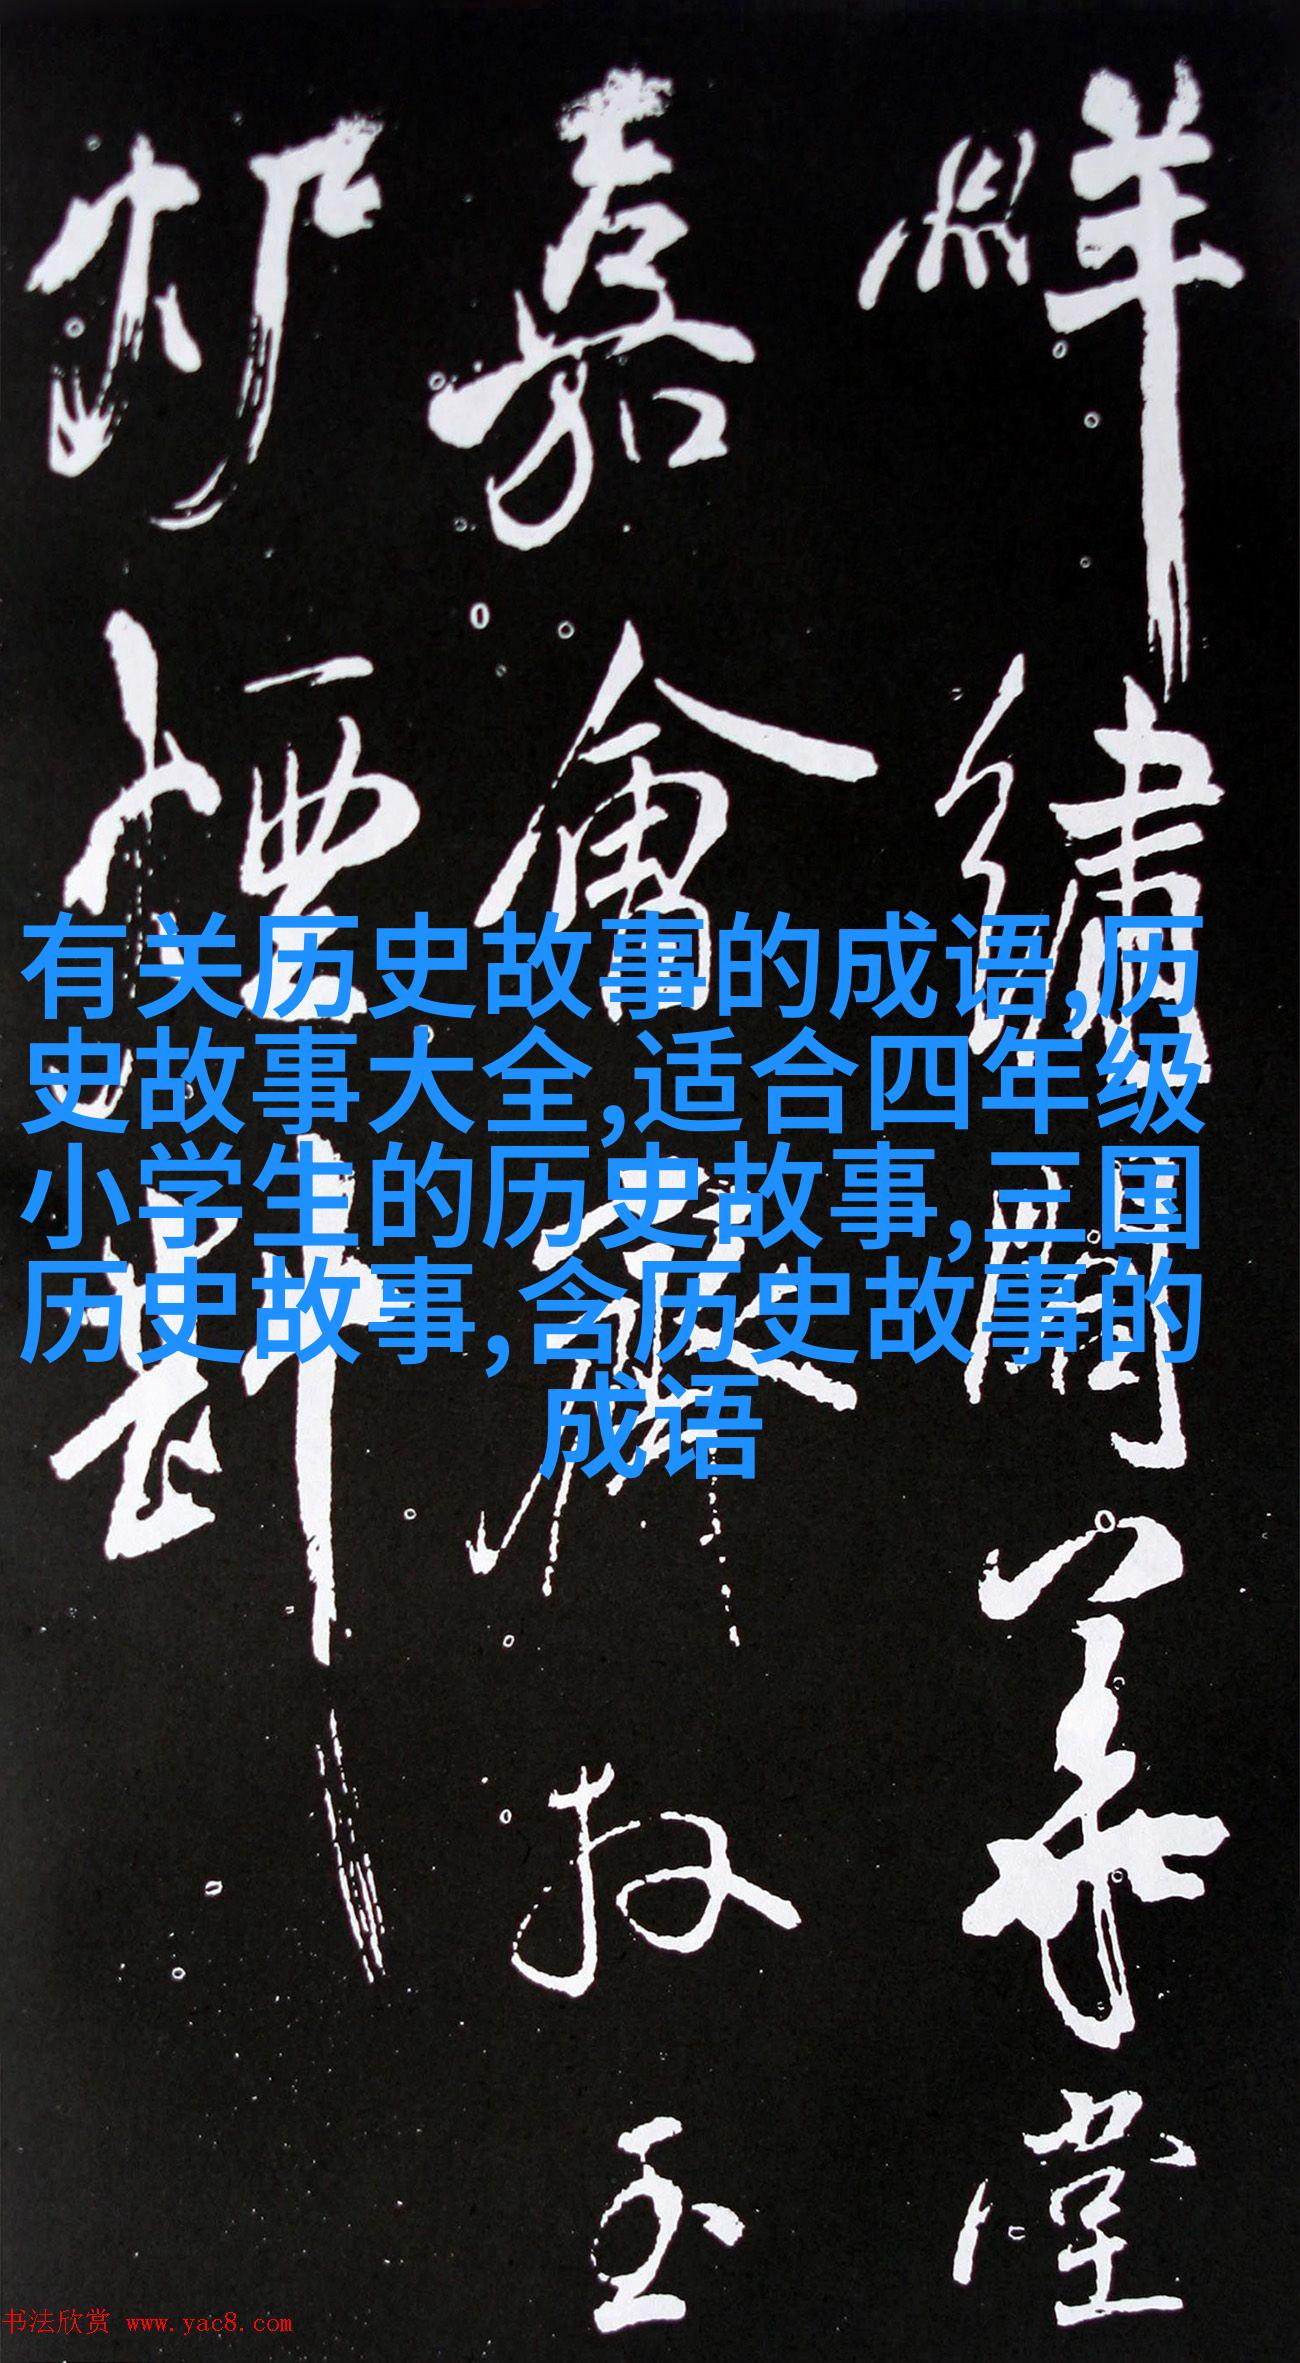 有关历史故事的成语,历
史故事大全,适合四年级
小学生的历史故事,三国
历史故事,含历史故事的
成语
繡
華
堂
嘉
會
玉
斟
书法欣赏 www.yac8.com